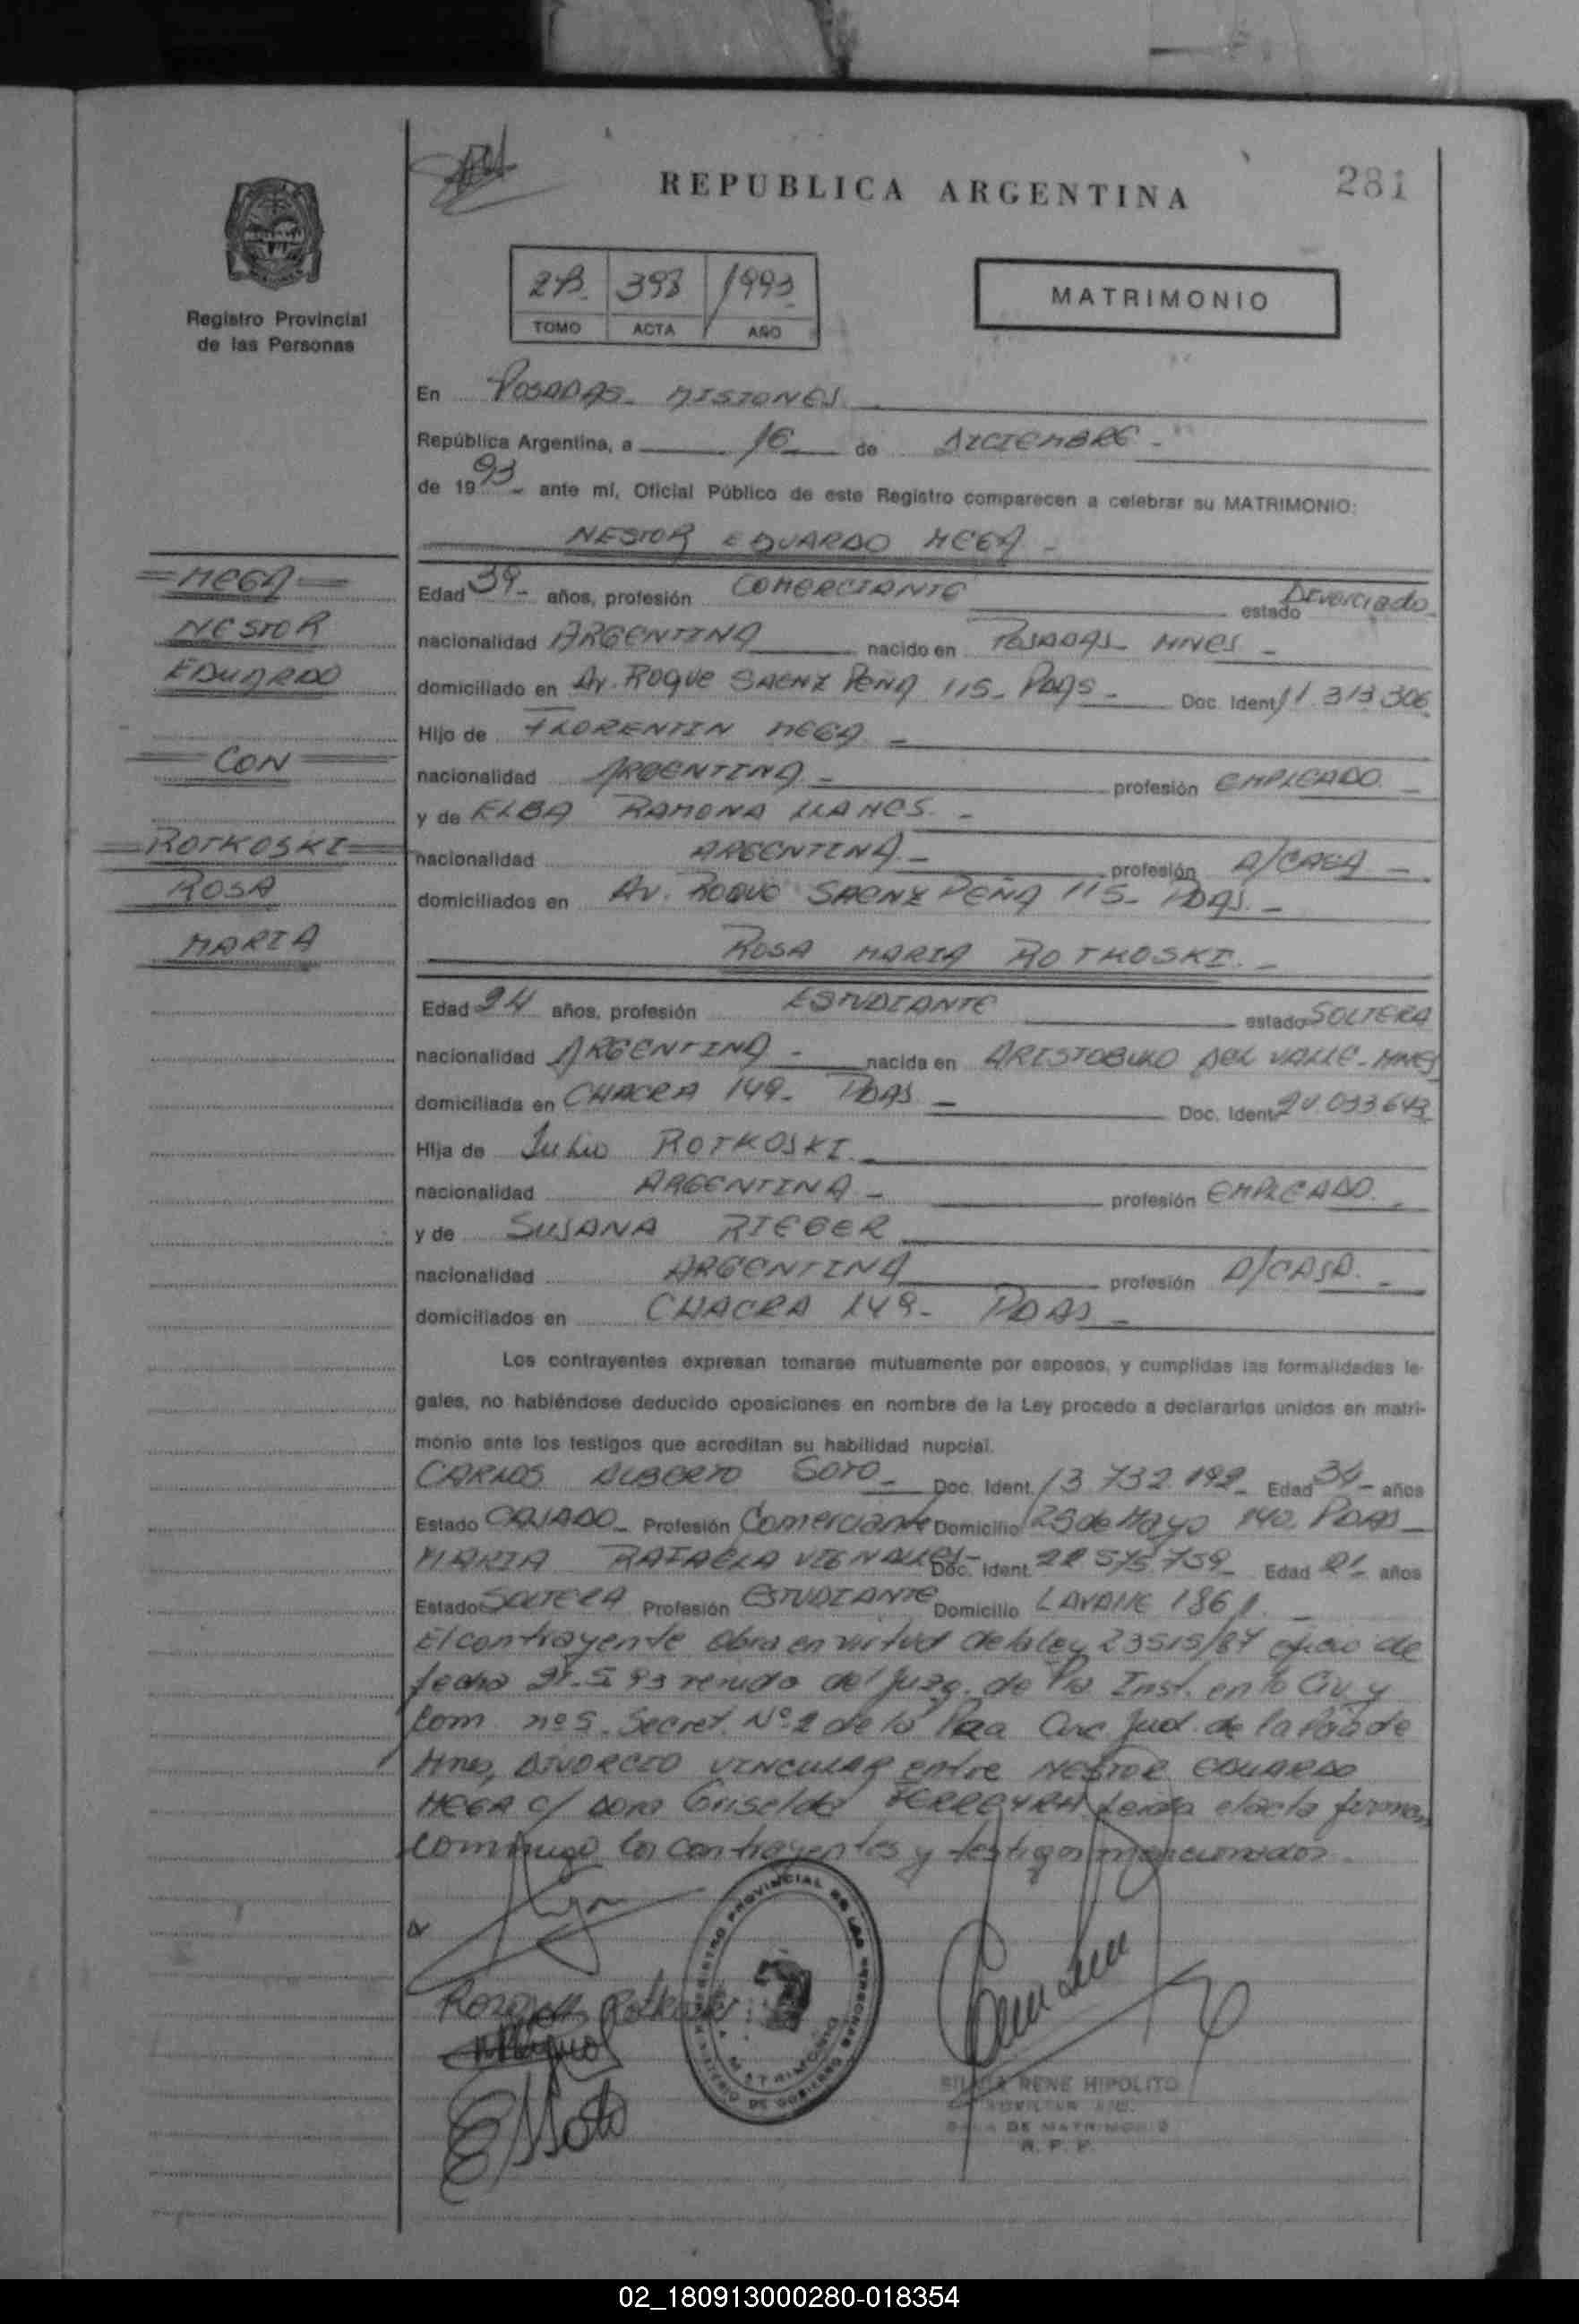 REPUBLICA ARGENTINA
281
2B. 398 1993
TOMO ACTA AÑO
MATRIMONIO
Registro Provincial
de las Personas
En POSADAS - MISIONES
República Argentina, a 16 de DICIEMBRE -
de 1993 - ante mí, Oficial Público de este Registro comparecen a celebrar su MATRIMONIO:
NESTOR EDUARDO MEGA -
MEGA
NESTOR
EDUARDO
CON
ROTKOSKI
ROSA
MARIA
Edad 39- años, profesión COMERCIANTE estado Divorciado
nacionalidad ARGENTINA nacido en POSADAS - MNES -
domiciliado en Av. ROQUE SAENZ PEÑA 115 - PDAS - Doc. Ident. 11.313.306
Hijo de FLORENTIN MEGA -
nacionalidad ARGENTINA - profesión EMPLEADO. -
y de ELBA RAMONA LLANES. -
nacionalidad ARGENTINA - profesión A/CASA -
domiciliados en AV. ROQUE SAENZ PEÑA 115 - PDAS. -
ROSA MARIA ROTKOSKI. -
Edad 24 años, profesión ESTUDIANTE estado SOLTERA
nacionalidad ARGENTINA - nacida en ARISTOBULO DEL VALLE - MNES
domiciliada en CHACRA 149 - PDAS - Doc. Ident. 20.033.643
Hija de Julio ROTKOSKI. -
nacionalidad ARGENTINA - profesión EMPLEADO. -
y de SUSANA RIEGER
nacionalidad ARGENTINA profesión A/CASA. -
domiciliados en CHACRA 149 - PDAS -
Los contrayentes expresan tomarse mutuamente por esposos, y cumplidas las formalidades le-
gales, no habiéndose deducido oposiciones en nombre de la Ley procedo a declararlos unidos en matri-
monio ante los testigos que acreditan su habilidad nupcial.
CARLOS ALBERTO SOTO - Doc. Ident. 13.732.192 - Edad 34 - años
Estado CASADO - Profesión Comerciante Domicilio 25 de Mayo 140. PDAS -
MARIA RAFAELA Doc. Ident. 22.575.759 - Edad 21 - años
Estado SOLTERA Profesión ESTUDIANTE Domicilio LAVALLE 1861. -
El contrayente obra en virtud de la ley 23515/87 oficio de
fecha 21.5.93 venido del Juzg. de Pra Inst. en lo Civ. y
Com. nº 5. Secret. Nº 2 de la Pra Circ. Jud. de la Pcia de
Mnes, DIVORCIO VINCULAR entre NESTOR EDUARDO
MEGA c/ Dora Griselda FERREYRA leida el acta firman
conmigo los contrayentes y testigos mencionados.
Rosa M. Rotkoski
REGISTRO PROVINCIAL DE LAS PERSONAS
MINISTERIO DE GOBIERNO
MATRIMONIO
Soto
RENE HIPOLITO
DE MATRIMONIO
R. P. P.
02_180913000280-018354